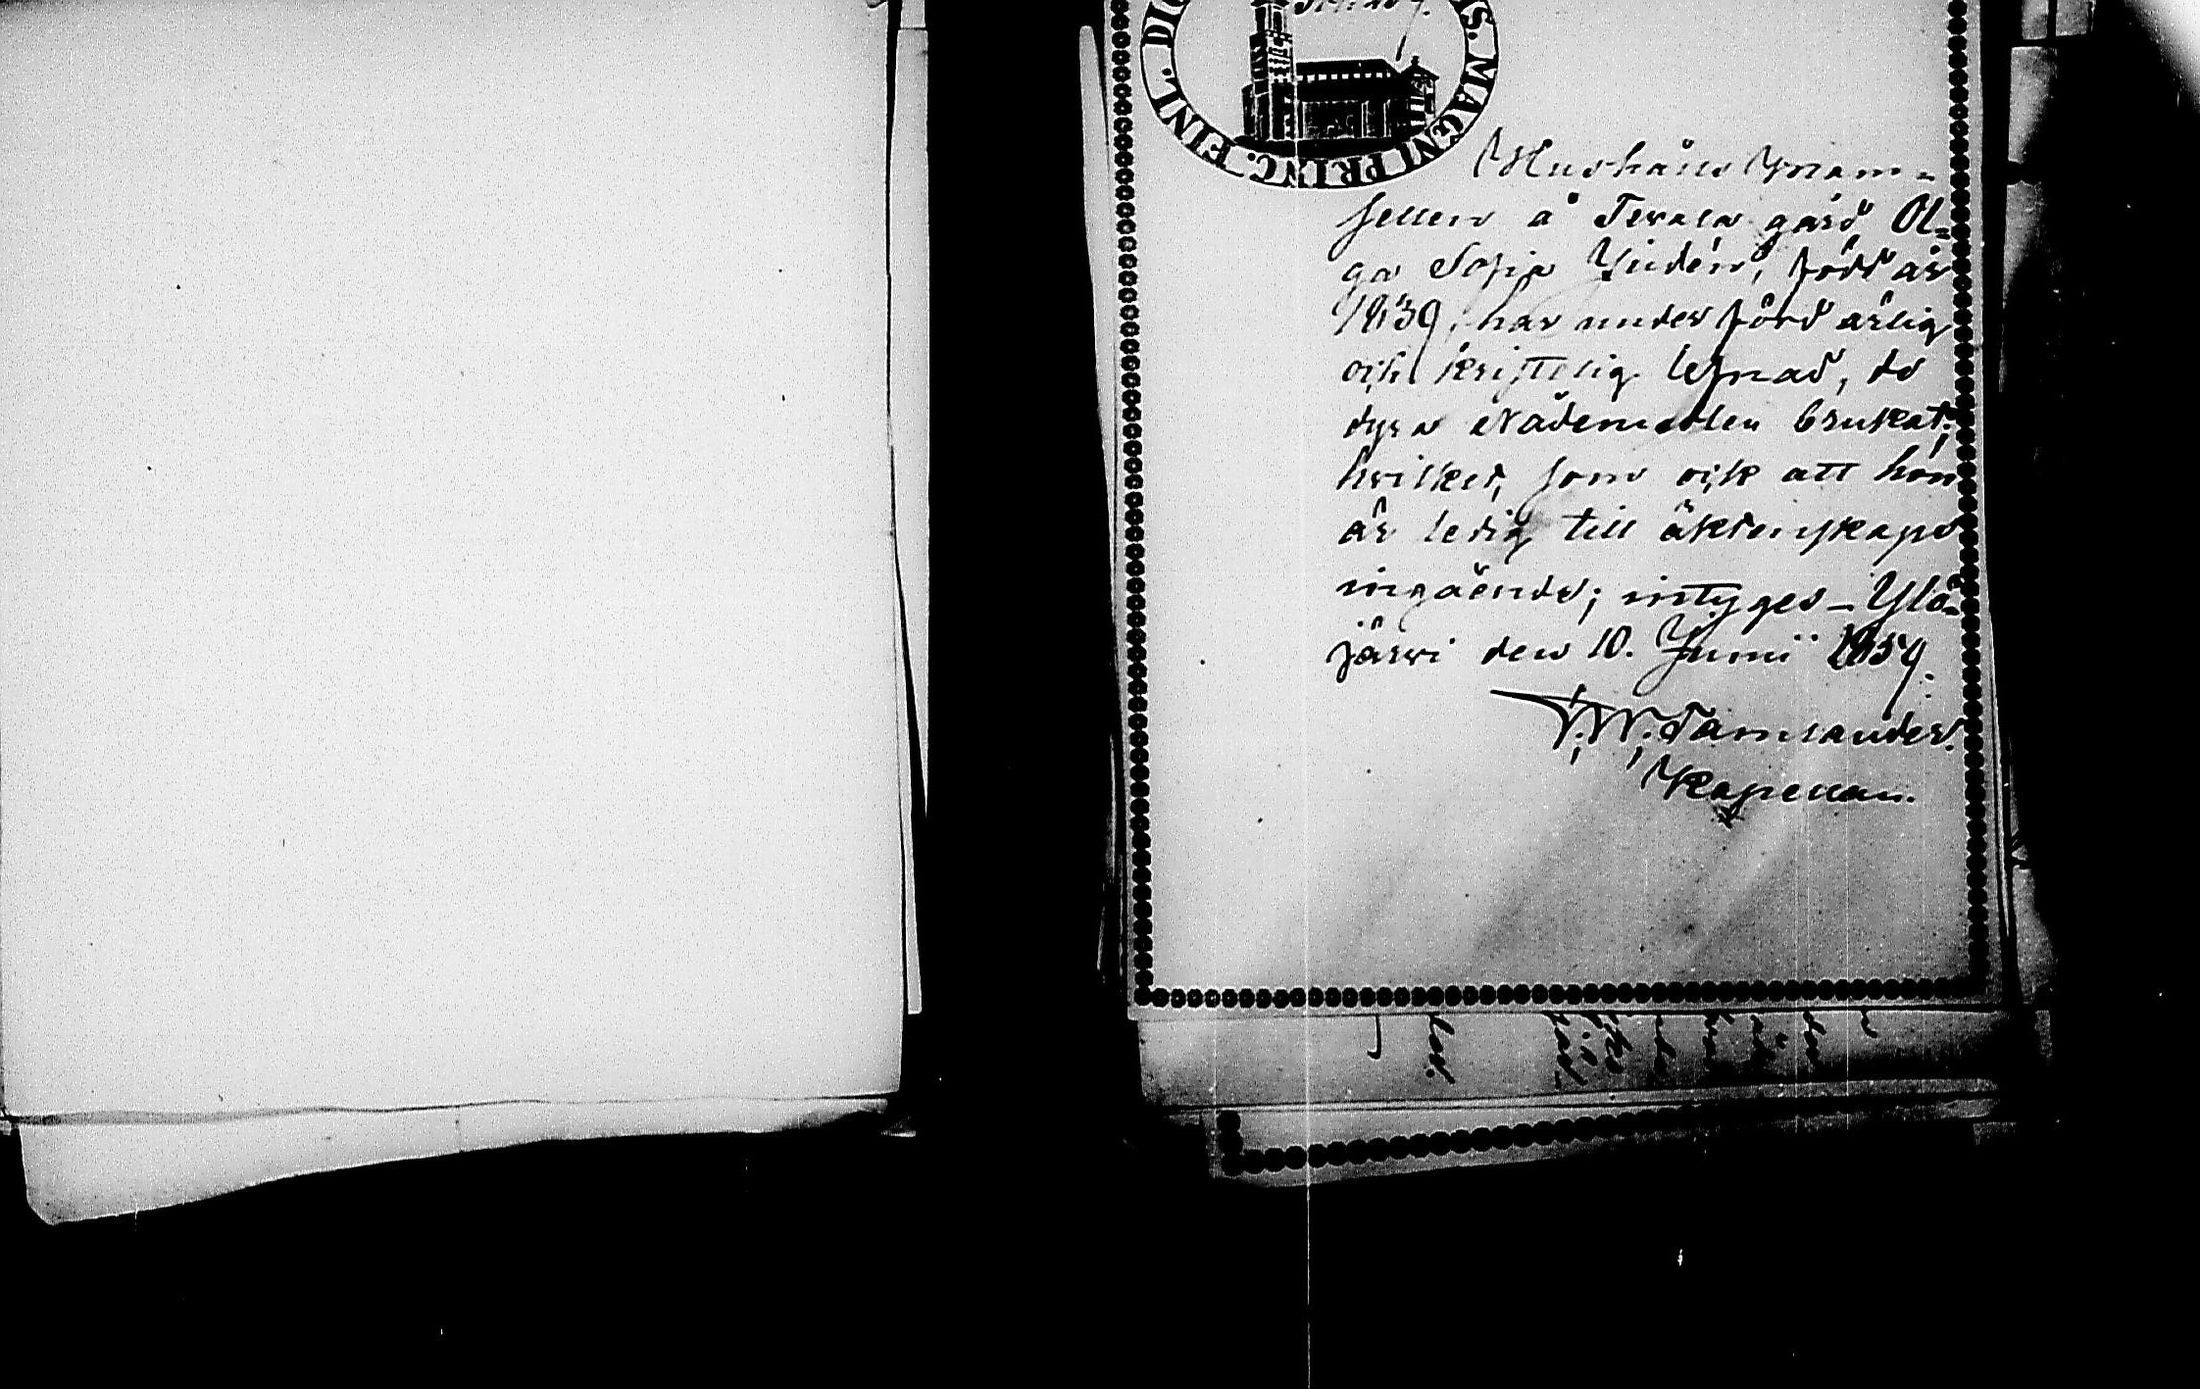 IS. MAGNI PRINC. FINL. DI
Hushålls Mam-
sellen å Terala gård Ol-
ga Sofia Lindén, född år
1839, har under förd ärlig
och kristelig lefnad, de
dyra Nådemedlen brukat;
hvilket, som ock att hon
är ledig till äktenskaps
ingående; intyges _ Ylö-
järvi den 10. Junii 1859.
Kapellan.